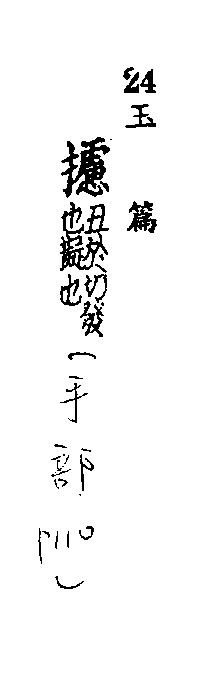 24 玉篇
攄
丑於切發
也擬也
(手部 P110)